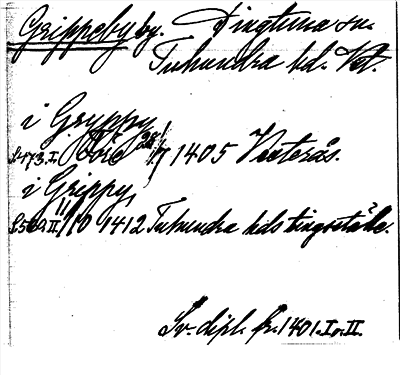 Grippeby by. Dingtuna sn.
Tuhundra hd. Vst.
i Gryppy,
s. 473. I. 28/7 1405 Västerås.
i Grippy,
II. 11/10 1412 Tuhundra hds tingställe.
Sv. dipl. fr. 1401. I o. II.